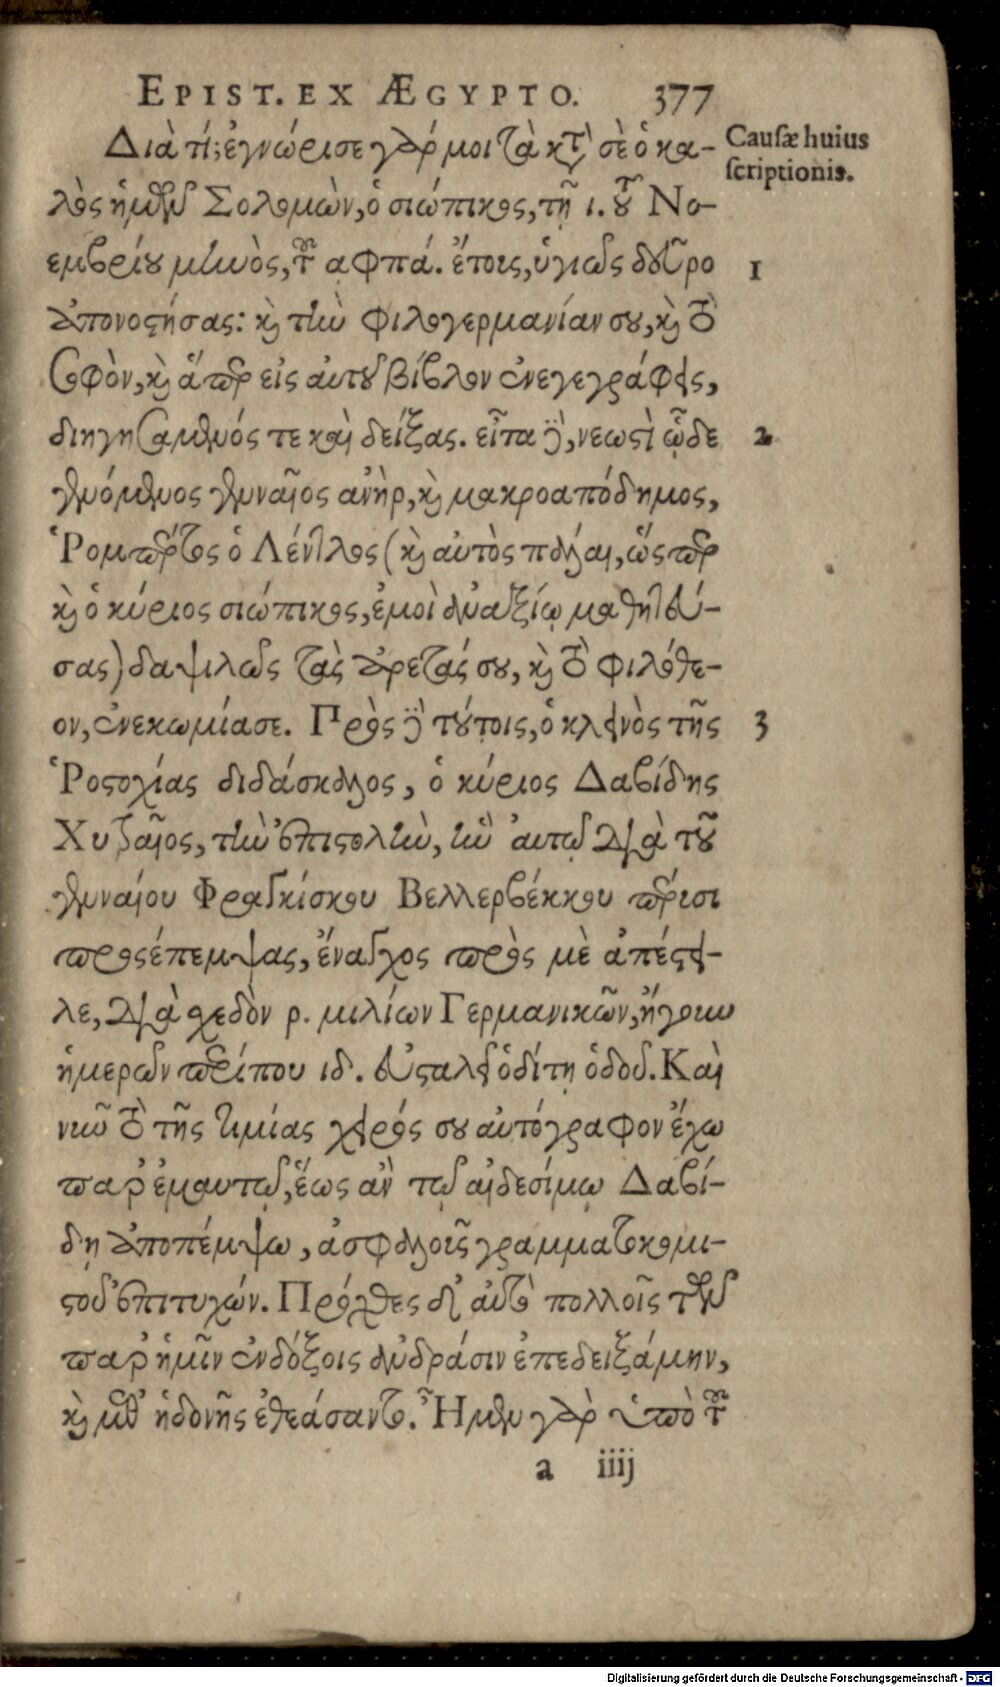 EPIST. EX ÆGYPTO. 377
Διὰ τί; ἐγνώρισε γάρ μοι τὰ κτ̀ σὲ ὁ κα-
λὸς ἡμῶν Σολομὼν, ὁ σιώπικος, τῇ ι. τοῦ Νο-
εμβρίου μηνὸς, τοῦ αφπά. ἔτους, ὑγιῶς δεῦρο
ἀπονοστήσας: καὶ τὴν φιλογερμανίαν σου, καὶ τὸ
σοφὸν, καὶ ἅπερ εἰς αὐτοῦ βίβλον ἐνεγεγράφεις,
διηγησαμενός τε καὶ δείξας. εἶτα δὲ, νεωστὶ ᾧδε
γενόμενος γενναῖος ἀνὴρ, καὶ μακροαπόδημος,
Ῥομπέρτος ὁ Λέντλος (καὶ αὐτὸς πάλαι, ὥσπερ
καὶ ὁ κύριος σιώπικος, ἐμοὶ ἀναξίῳ μαθητεύ-
σας) δαψιλῶς τὰς ἀρετάς σου, καὶ τὸ φιλόθε-
ον, ἐνεκωμίασε. Πρὸς δὲ τούτοις, ὁ κλεινὸς τῆς
Ῥοστοχίας διδάσκαλος, ὁ κύριος Δαβίδης
Χυτραῖος, τὴν ἐπιστολὴν, ἣν αὐτῷ διὰ τοῦ
γενναίου Φραγκίσκου Βελλερβέκκου πέρισι
προσέπεμψας, ἔναγχος πρὸς μὲ ἀπέστει-
λε, διὰ σχεδὸν ρ. μιλίων Γερμανικῶν, ἤγουν
ἡμερῶν περίπου ιδ. εὐσταλεῖ ὁδίτῃ ὁδοῦ. Καὶ
νῦν τὸ τῆς τιμίας χειρός σου αὐτόγραφον ἔχω
παρ' ἐμαυτῷ, ἕως ἂν τῷ αἰδεσίμῳ Δαβί-
δῃ ἀποπέμψω, ἀσφαλοῦς γραμματοκομι-
στοῦ ἐπιτυχών. Πρόχθες δ' αὐτὸ πολλοῖς τῶν
παρ' ἡμῖν ἐνδόξοις ἀνδράσιν ἐπεδειξάμην,
καὶ μεθ' ἡδονῆς ἐθεάσαντο. Ἦμεν γὰρ ὑπὸ τοῦ
a iiij
Causæ huius
scriptionis.
1
2
3
Digitalisierung gefördert durch die Deutsche Forschungsgemeinschaft - DFG